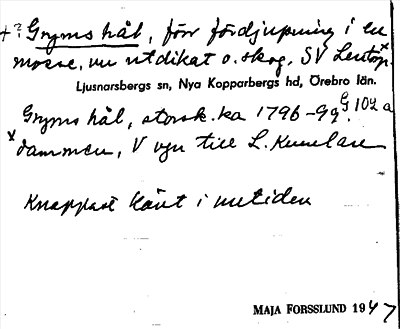 +? Gryms hål, förr fördjupning i en
mosse, nu utdikat o. skog, SV Lentorp.
Ljusnarsbergs sn, Nya Kopparbergs hd, Örebro län.
Gryms hål, storsk.ka 1796-99. G 102 a
x dammen, V vgn till L. Kumlaen
Knappast känt i nutiden
MAJA FORSSLUND 1947